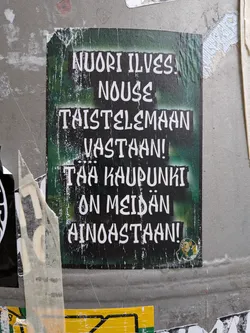 NUORI ILVES:
NOUSE
TAISTELEMAAN
VASTAAN!
TÄÄ KAUPUNKI
ON MEIDÄN
AINOASTAAN!